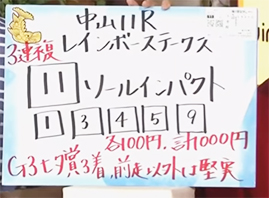 中山11R
3連複 レインボーステークス
11 ソールインパクト
1 3 4 5 9
各100円.計1000円
G3七夕賞3着.前走以外は堅実